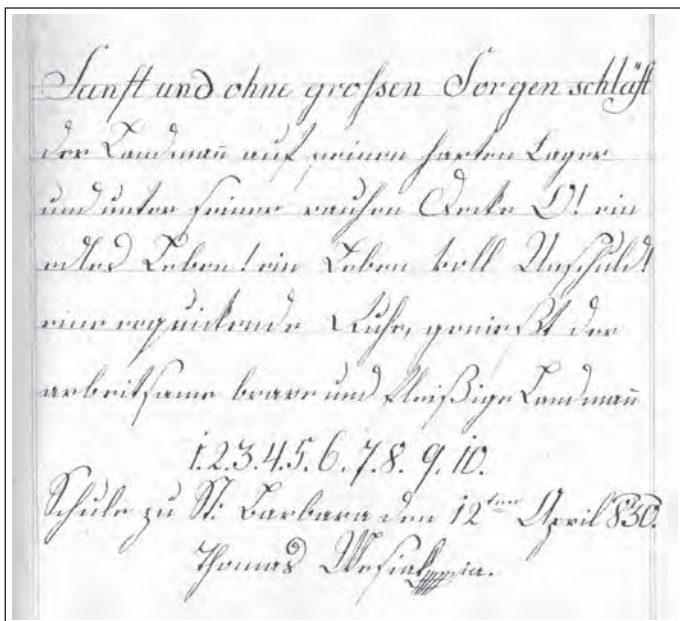 Sanft und ohne großen Sorgen schläft
der Landman̄ auf seinen harten Lager
und unter seiner rauhen Decke O! ein
edles Leben! ein Leben voll Unschuld!
eine erquickende Ruhe, genießt der
arbeitsame brave und fleißige Landman̄
1.2.3.4.5.6.7.8.9.10.
Schule zu St: Barbara den 12ten April 830.
Thomas Wesiak